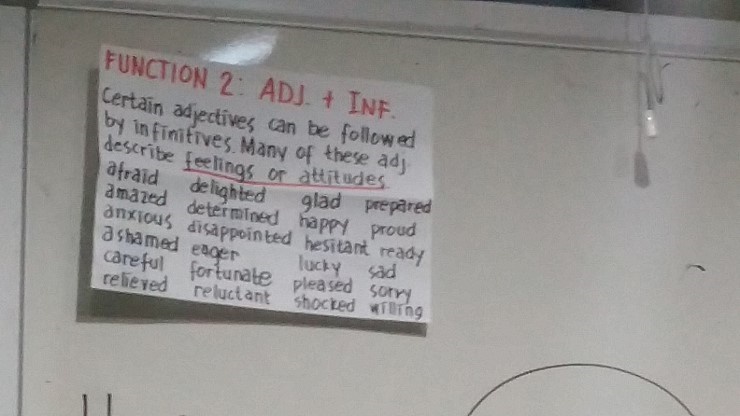 FUNCTION 2: ADJ. + INF.
Certain adjectives can be followed
by infinitives. Many of these adj.
describe feelings or attitudes.
afraid delighted glad prepared
amazed determined happy proud
anxious disappointed hesitant ready
ashamed eager lucky sad
careful fortunate pleased sorry
relieved reluctant shocked willing